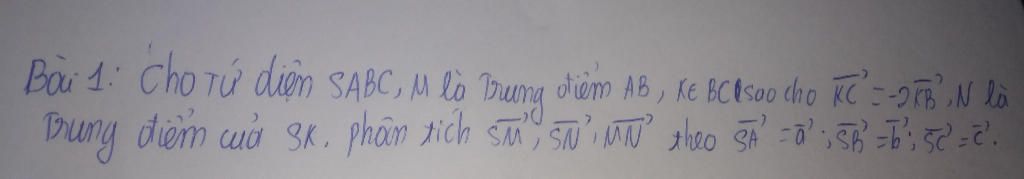 Bài 1: Cho Tứ diện SABC, M là Trung điểm AB, K∈BC sao cho $\overrightarrow{KC}$ = -2$\overrightarrow{KB}$, N là
Trung điểm cuả SK. phân tích $\overrightarrow{SM}$, $\overrightarrow{SN}$, $\overrightarrow{MN}$ theo $\overrightarrow{SA}$ = $\vec{a}$; $\overrightarrow{SB}$ = $\vec{b}$; $\overrightarrow{SC}$ = $\vec{c}$.